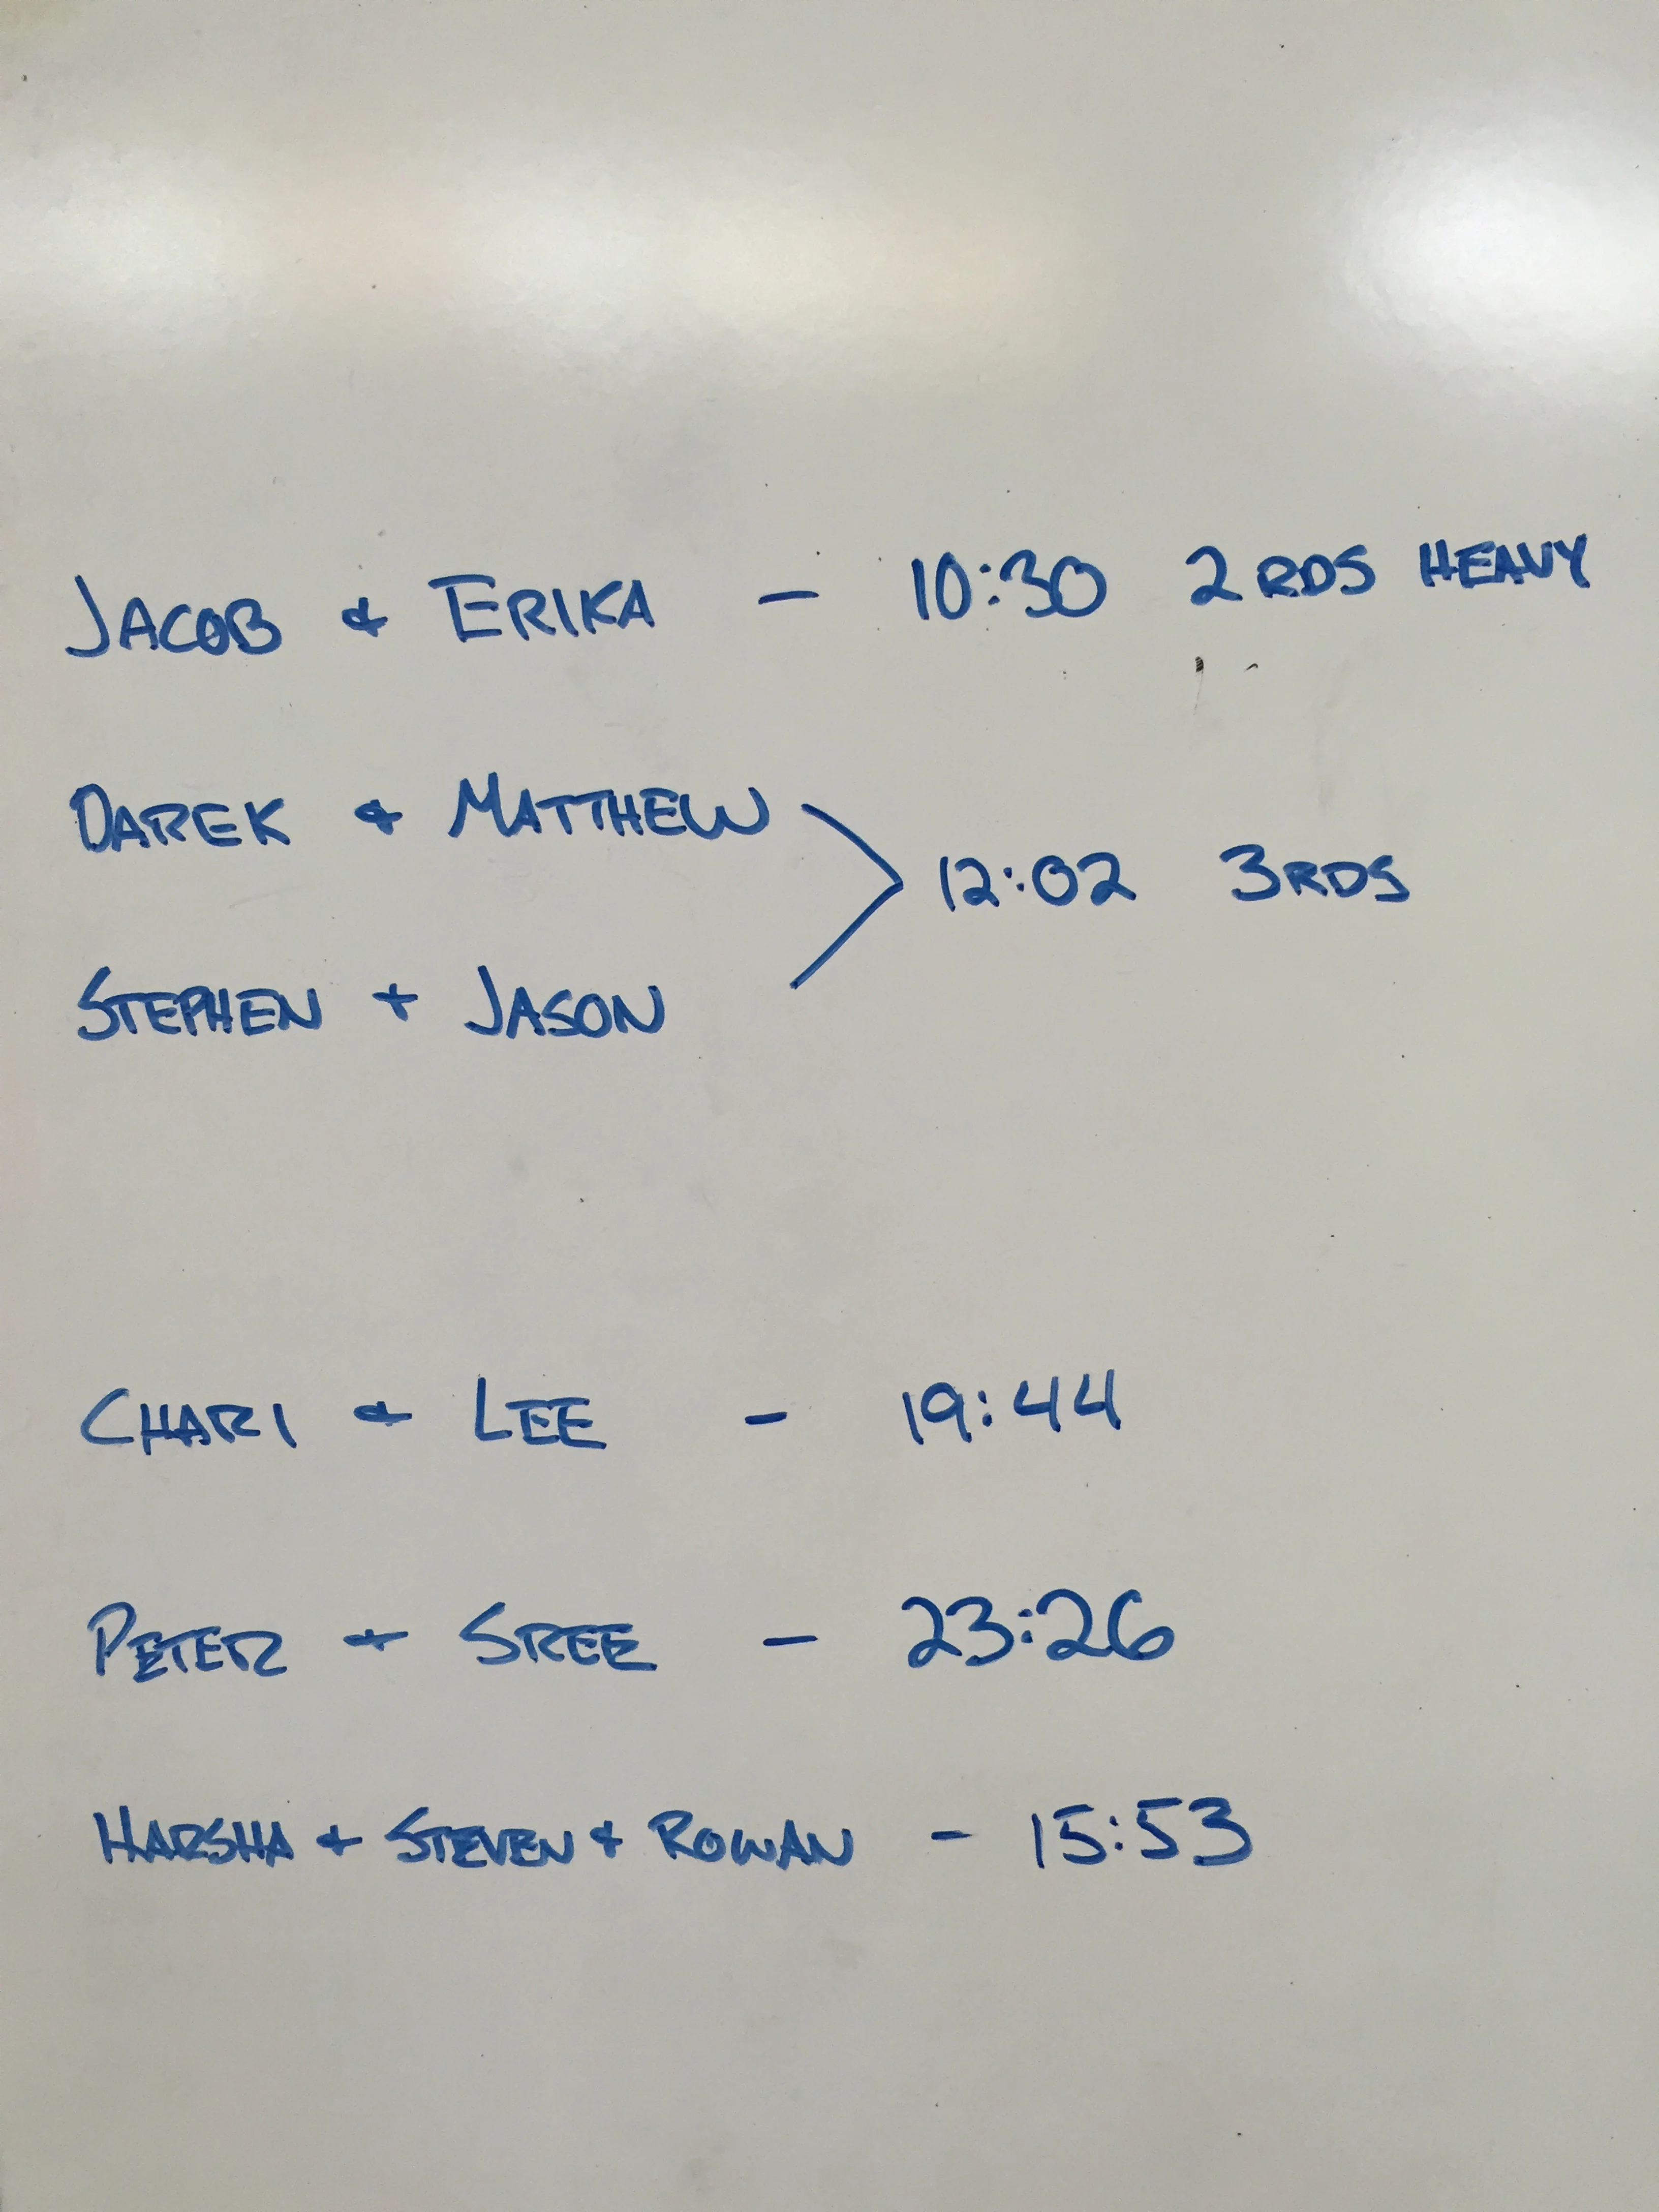 JACOB & ERIKA - 10:30 2 RDS HEAVY
DAREK & MATTHEW
12:02 3RDS
STEPHEN + JASON
CHARI & LEE - 19:44
PETER & SREE - 23:26
HARSHA & STEVEN & ROWAN - 15:53